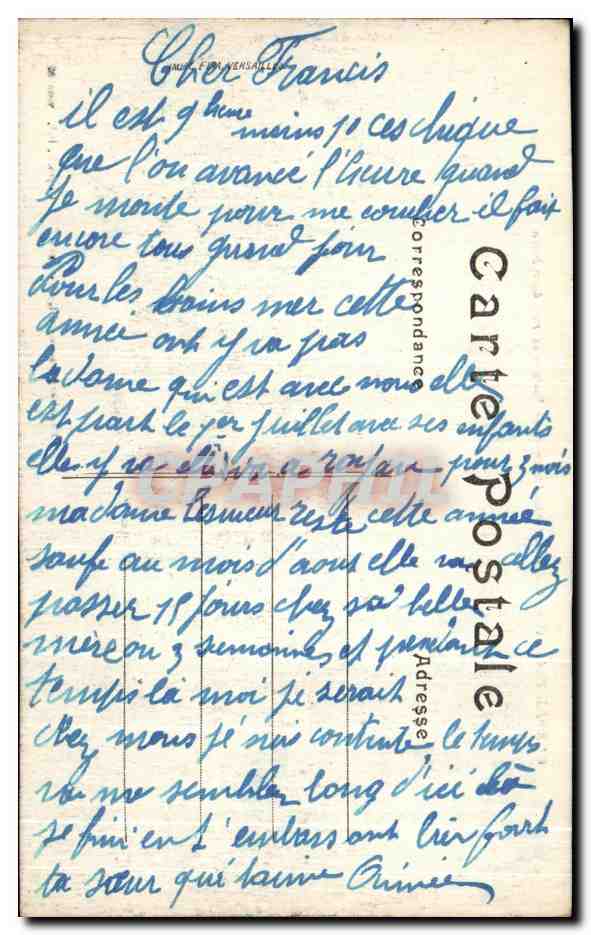 Cher Francis
IMP. FIFA VERSAILLES
il est 9 heure moins 10 ces chique
que l'on avancé l'heure quand
je monte pour me coucher il fait
encore tous grand jour
Pour les bains mer cette
année ont y va pas
la dame qui est avec nous elle
est part le 1er juillet avec ses enfants
elle y va a royan pour 3 mois
madame Lesueur reste cette année
saufe au mois d'aout elle va allez
passer 15 jours chez sa belle
mère ou 3 semaines et pendant ce
temps la moi je serait
chez nous je suis contente le temps
va me semblez long d'ici là
je fini en t'embrassant bien fort
ta sœur qui t'aime Aimée
Carte Postale
Correspondance
Adresse
CPAPHIL